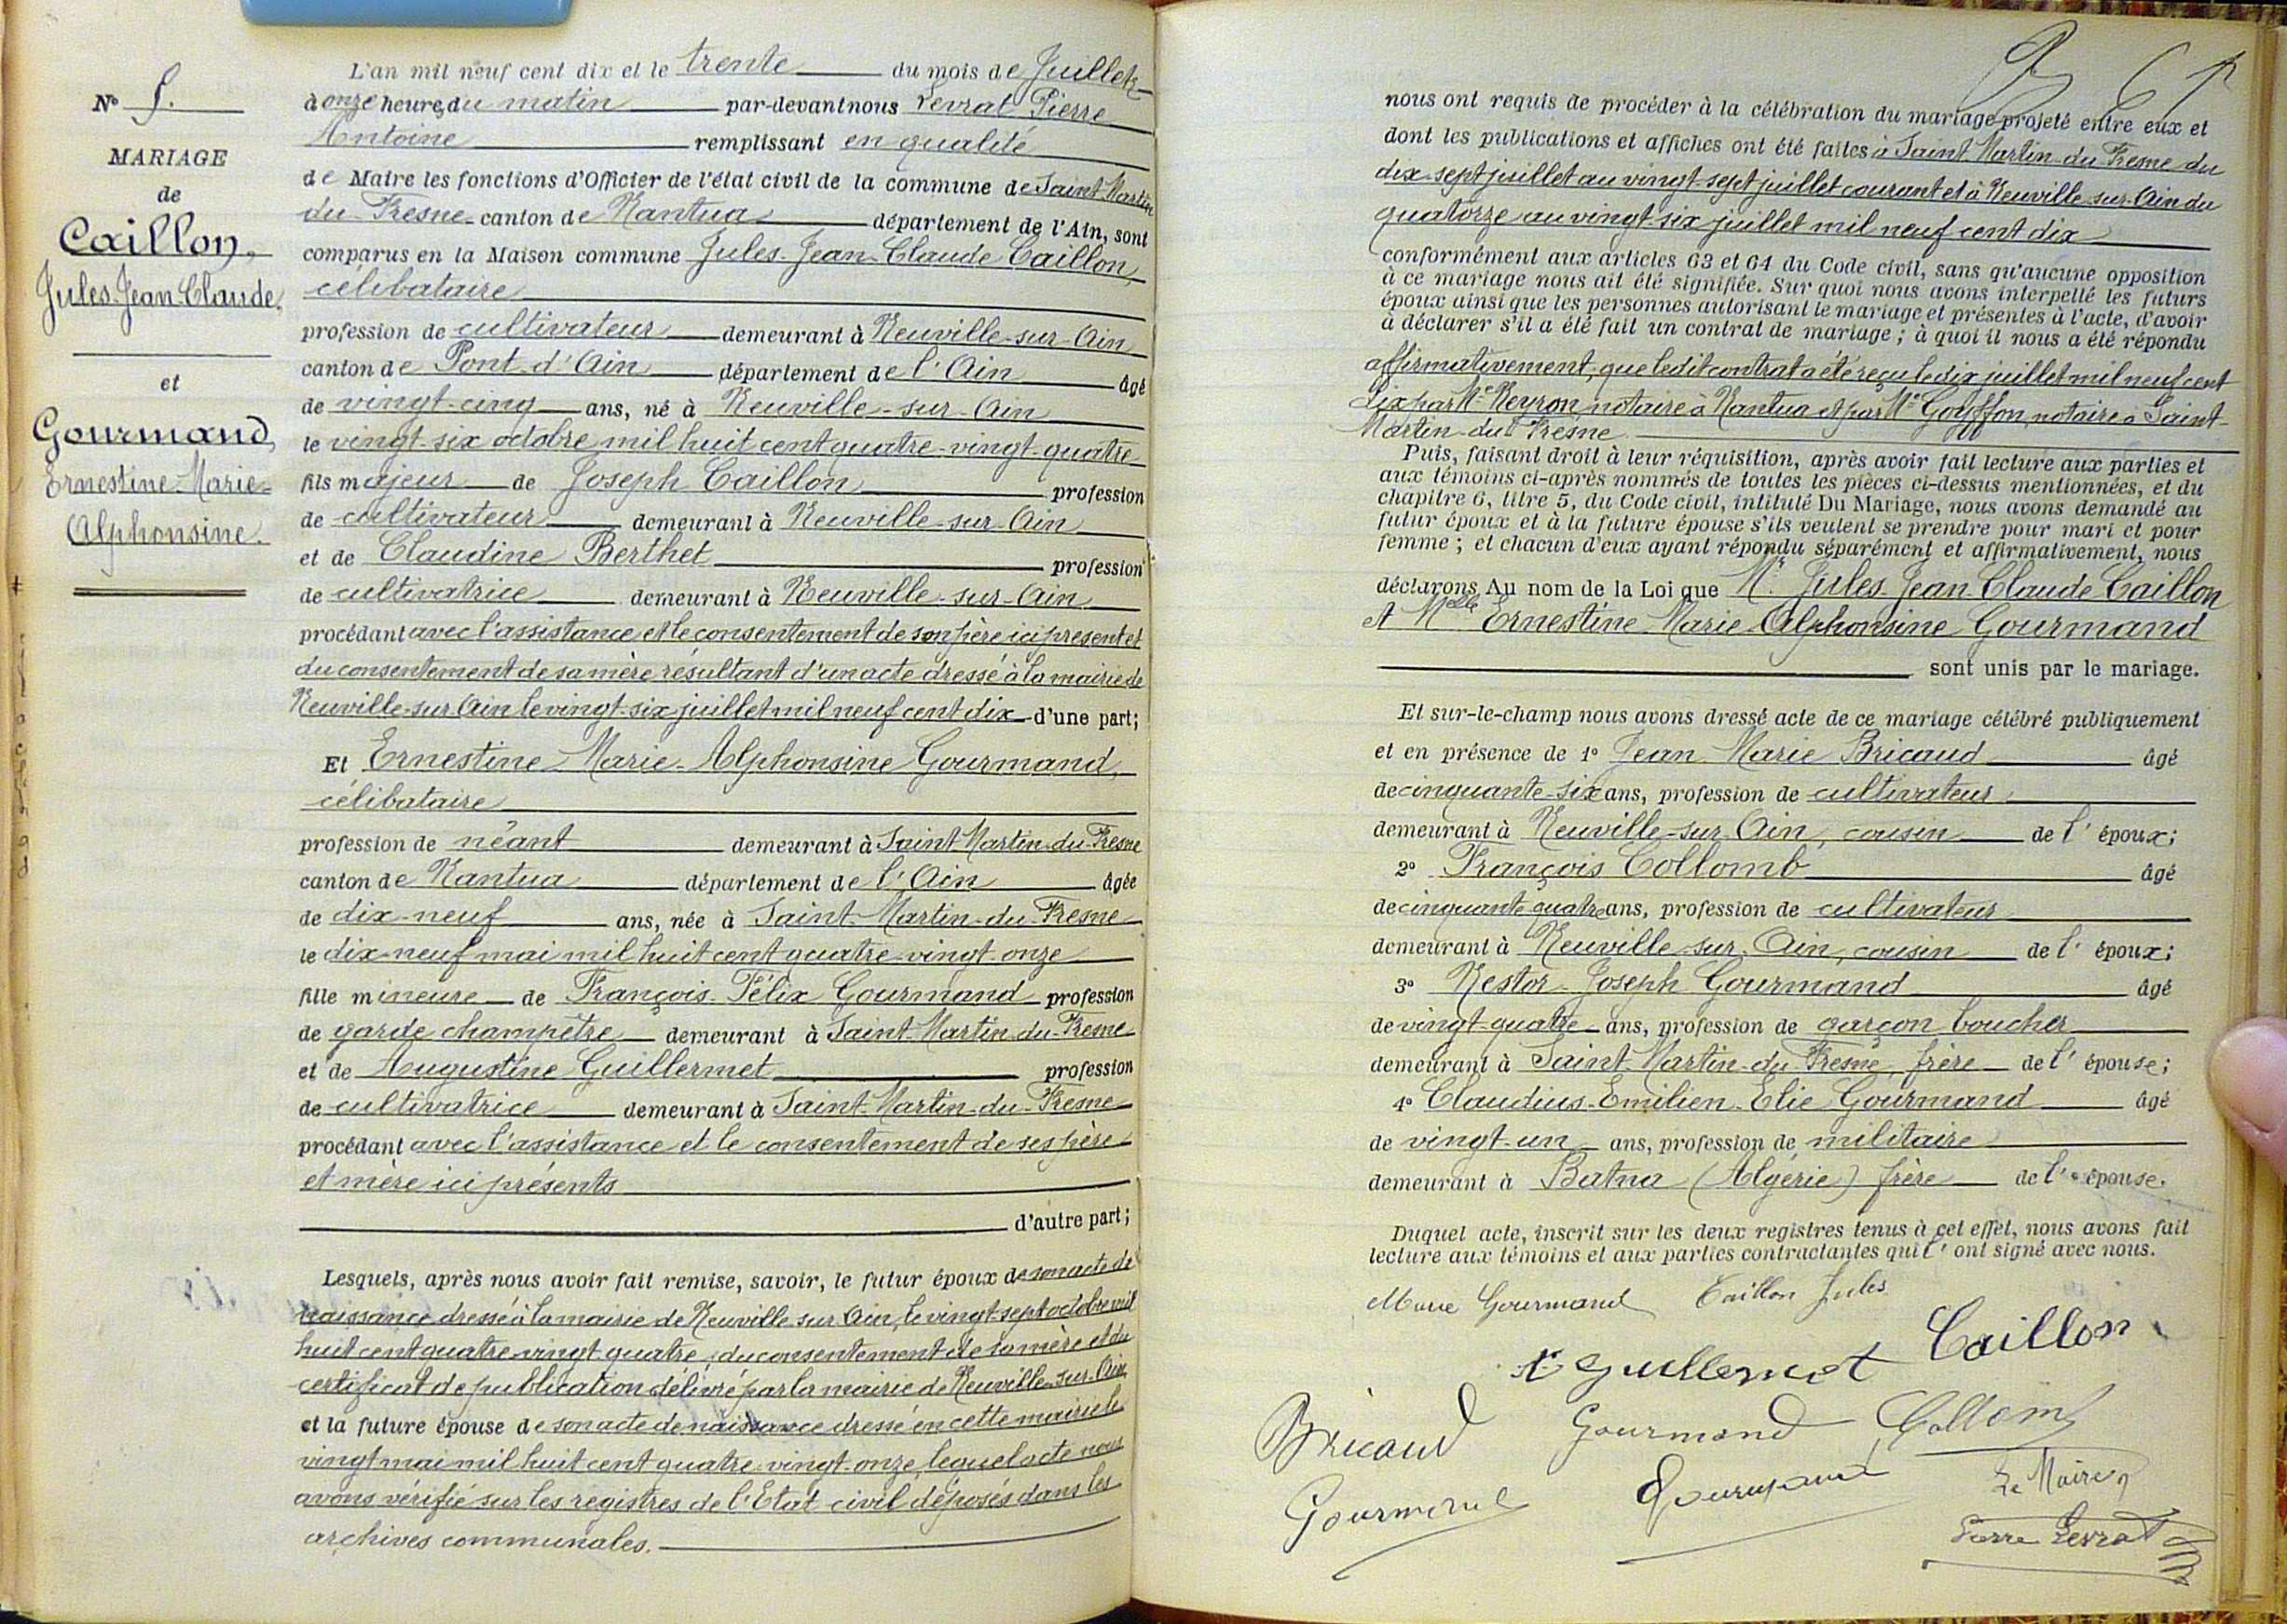 N° 5.
MARIAGE
de
Caillon,
Jules-Jean-Claude.
et
Gourmand,
Ernestine-Marie-
Alphonsine.
L'an mil neuf cent dix et le trente du mois de Juillet
à onze heures du matin par-devant nous Levrat Pierre
Antoine remplissant en qualité
de Maire les fonctions d'Officier de l'état civil de la commune de Saint-Martin
du-Fresne canton de Nantua département de l'Ain, sont
comparus en la Maison commune Jules-Jean-Claude Caillon,
célibataire
profession de cultivateur demeurant à Neuville-sur-Ain
canton de Pont-d'Ain département de l'Ain âgé
de vingt-cinq ans, né à Neuville-sur-Ain
le vingt-six octobre mil huit cent quatre-vingt-quatre
fils majeur de Joseph Caillon profession
de cultivateur demeurant à Neuville-sur-Ain
et de Claudine Berthet profession
de cultivatrice demeurant à Neuville-sur-Ain
procédant avec l'assistance et le consentement de son père ici présent et
du consentement de sa mère résultant d'un acte dressé à la mairie de
Neuville-sur-Ain le vingt-six juillet mil neuf cent dix d'une part;
Et Ernestine-Marie-Alphonsine Gourmand,
célibataire
profession de néant demeurant à Saint-Martin-du-Fresne
canton de Nantua département de l'Ain âgée
de dix-neuf ans, née à Saint-Martin-du-Fresne
le dix-neuf mai mil huit cent quatre-vingt-onze
fille mineure de François-Félix Gourmand profession
de garde champêtre demeurant à Saint-Martin-du-Fresne
et de Augustine Guillermet profession
de cultivatrice demeurant à Saint-Martin-du-Fresne
procédant avec l'assistance et le consentement de ses père
et mère ici présents
d'autre part;
Lesquels, après nous avoir fait remise, savoir, le futur époux de son acte de
naissance dressé à la mairie de Neuville-sur-Ain, le vingt-sept octobre mil
huit cent quatre-vingt-quatre, du consentement de sa mère et du
certificat de publication délivré par la mairie de Neuville-sur-Ain
et la future épouse de son acte de naissance dressé en cette mairie le
vingt mai mil huit cent quatre-vingt-onze, lequel acte nous
avons vérifié sur les registres de l'Etat civil déposés dans les
archives communales.
nous ont requis de procéder à la célébration du mariage projeté entre eux et
dont les publications et affiches ont été faites à Saint-Martin-du-Fresne du
dix-sept juillet au vingt-sept juillet courant et à Neuville-sur-Ain du
quatorze au vingt-six juillet mil neuf cent dix
conformément aux articles 63 et 64 du Code civil, sans qu'aucune opposition
à ce mariage nous ait été signifiée. Sur quoi nous avons interpellé les futurs
époux ainsi que les personnes autorisant le mariage et présentes à l'acte, d'avoir
à déclarer s'il a été fait un contrat de mariage; à quoi il nous a été répondu
affirmativement, que ledit contrat a été reçu le dix juillet mil neuf cent
dix par Me Neyron, notaire à Nantua et par Me Goyffon, notaire à Saint-
Martin-du-Fresne
Puis, faisant droit à leur réquisition, après avoir fait lecture aux parties et
aux témoins ci-après nommés de toutes les pièces ci-dessus mentionnées, et du
chapitre 6, titre 5, du Code civil, intitulé Du Mariage, nous avons demandé au
futur époux et à la future épouse s'ils veulent se prendre pour mari et pour
femme; et chacun d'eux ayant répondu séparément et affirmativement, nous
déclarons Au nom de la Loi que Mr Jules-Jean-Claude Caillon
et Melle Ernestine-Marie-Alphonsine Gourmand
sont unis par le mariage.
Et sur-le-champ nous avons dressé acte de ce mariage célébré publiquement
et en présence de 1° Jean-Marie Bricaud âgé
de cinquante-six ans, profession de cultivateur
demeurant à Neuville-sur-Ain, cousin de l'époux;
2° François Collomb âgé
de cinquante quatre ans, profession de cultivateur
demeurant à Neuville-sur-Ain, cousin de l'époux;
3° Nestor-Joseph Gourmand âgé
de vingt-quatre ans, profession de garçon boucher
demeurant à Saint-Martin-du-Fresne, frère de l'épouse;
4° Claudius-Emilien-Elie Gourmand âgé
de vingt-un ans, profession de militaire
demeurant à Batna (Algérie) frère de l'épouse.
Duquel acte, inscrit sur les deux registres tenus à cet effet, nous avons fait
lecture aux témoins et aux parties contractantes qui l'ont signé avec nous.
Marie Gourmand Caillon Jules
Caillon
Ae Guillermet
Bricaud Gourmand Collomb
Gourmand Gourmand Le Maire
Pierre Levrat